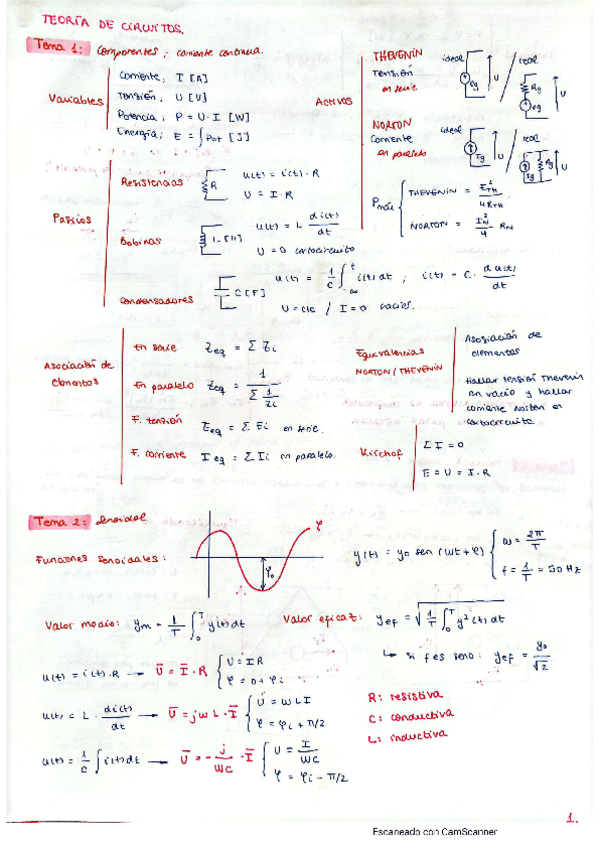 TEORÍA DE CIRCUITOS.
Tema 1: Componentes; corriente continua.
Variables
Corriente; I [A]
Tensión; U [U]
Potencia; P = U · I [W]
Energía; E = ∫ Pot [J]
Activos
THEVENIN
Tensión
en serie
ideal
eg
U
real
Rg
eg
U
NORTON
Corriente
en paralelo
ideal
Ig
U
real
Ig
Rg
U
Pmáx
THEVENIN = E²TH / 4RTH
NORTON = I²N / 4 RN
Pasivos
Resistencias
R
u(t) = i(t) · R
U = I · R
Bobinas
L [H]
u(t) = L di(t)/dt
U = 0 cortocircuito
Condensadores
C [F]
u(t) = 1/C ∫ t -∞ i(t) dt ; i(t) = C · du(t)/dt
U = cte / I = 0 vacío.
Asociación de
elementos
En serie Zeq = Σ Zi
En paralelo Zeq = 1 / Σ 1/Zi
F. tensión Eeq = Σ Ei en serie.
F. corriente Ieq = Σ Ii en paralelo.
Equivalencias
NORTON / THEVENIN
Asociación de
elementos
Hallar tensión Thevenin
en vacío y hallar
corriente Norton en
cortocircuito
Kirchof
Σ I = 0
E = U = I · R
Tema 2: Senoidal
Funciones senoidales:
φ
y(t) = yo sen (ωt + φ)
ω = 2π/T
f = 1/T = 50 Hz
Valor medio: ym = 1/T ∫ T 0 y(t) dt
Valor eficaz: yef = √ 1/T ∫ T 0 y²(t) dt
↳ si f es seno: yef = yo/√2
u(t) = i(t) · R → U = I · R
U = IR
φ = 0 + φi
u(t) = L · di(t)/dt → U = jωL · I
U = ωLI
φ = φi + π/2
u(t) = 1/C ∫ i(t) dt → U = - j/ωC · I
U = I/ωC
φ = φi - π/2
R: resistiva
C: conductiva
L: inductiva
1.
Escaneado con CamScanner